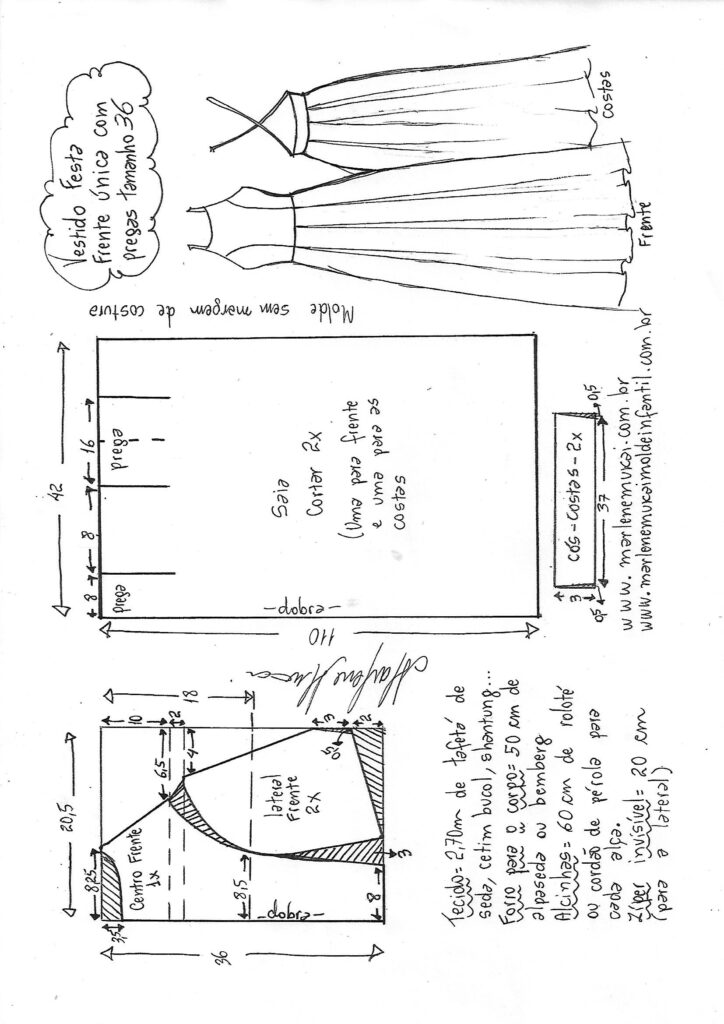 Vestido Festa
Frente Única com
pregas tamanho 36
Costas
Frente
Molde sem margem de costura
42
16
8
8
prega
prega
Saia
Cortar 2x
(Uma para frente
e uma para as
costas
-dobra-
110
cós-costas-2x
37
3
0,5
0,5
www.marlenemukai.com.br
www.marlenemukaimoldeinfantil.com.br
Marlene Mukai
20,5
18
10
2
6,5
4
8,25
3,5
Centro Frente
1x
lateral
Frente
2x
0,5
3
2
8,5
-dobra-
8
3
36
Tecido= 2,70m de tafetá de
seda, cetim bucol, shantung...
Forro para o corpo= 50 cm de
alpaseda ou bemberg
Alcinhas= 60 cm de roloté
ou cordão de pérola para
cada alça.
Zíper invisível= 20 cm
(para a lateral)